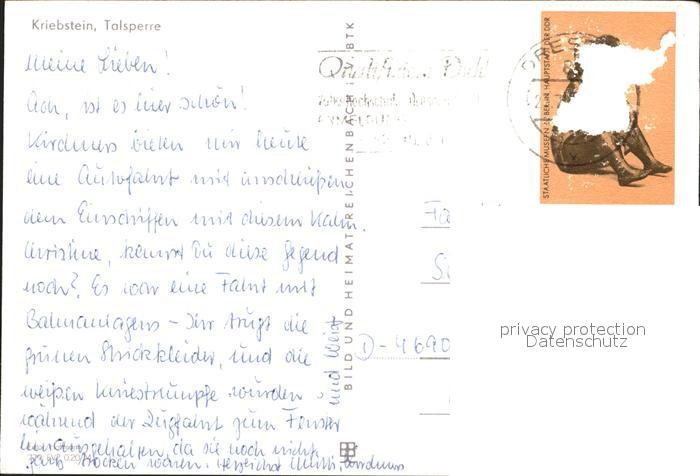 Kriebstein, Talsperre
Meine Lieben!
Ach, ist es hier schön!
Kirchners bieten mir heute
eine Autofahrt mit anschließen
dem Einschiffen mit diesem Kahn.
Christine, kennst Du diese Gegend
noch? Es war eine Fahrt mit
Bahnanlagens – Ihr trugt die
grünen Strickkleider, und die
weißen Kniestrümpfe wurden
während der Zugfahrt zum Fenster
hinausgehalten, da sie noch nicht
ganz trocken waren. Herzlichst Mutti,
und
BILD UND HEIMAT REICHENBACH I. V. BTK
STAATLICHE MUSEEN ZU BERLIN, HAUPTSTADT DER DDR
DRES
Fa
D-4690
privacy protection
Datenschutz